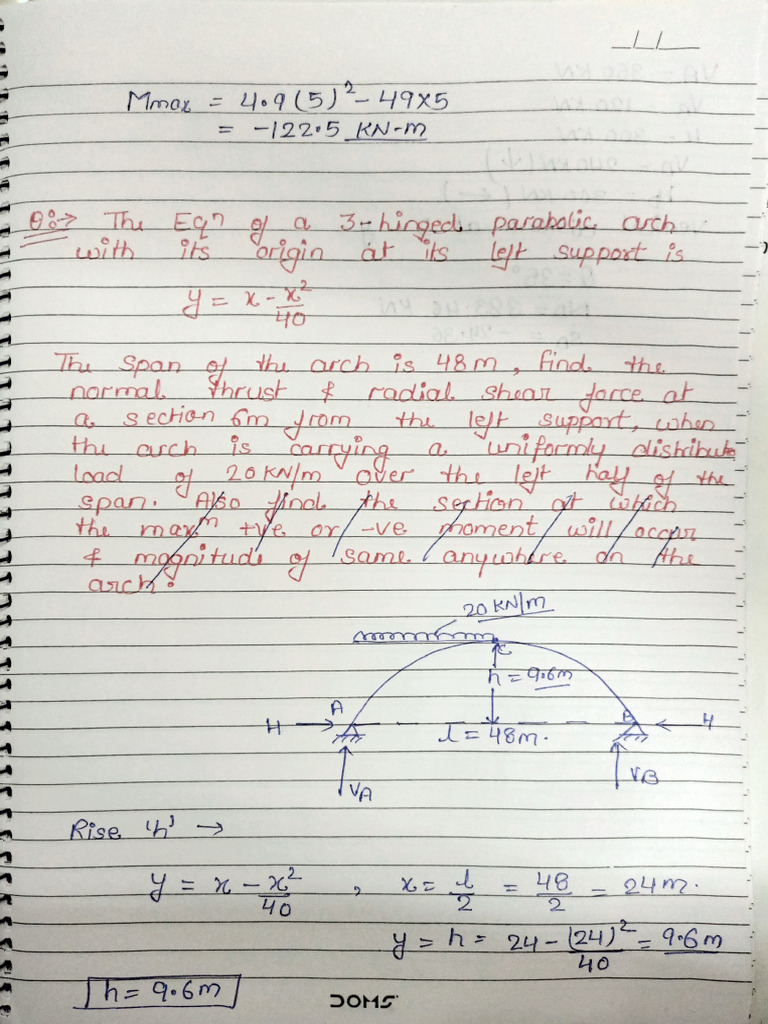 _/_/___
Mmax = 4.9(5)² - 49×5
= -122.5 KN-m
Q:→ The Eqⁿ of a 3-hinged parabolic arch
with its origin at its left support is
y = x - x²/40
The span of the arch is 48m, find the
normal thrust & radial shear force at
a section 6m from the left support, when
the arch is carrying a uniformly distribute
load of 20KN/m over the left half of the
span. Also find the section at which
the maxᵐ +ve or -ve moment will occur
& magnitude of same anywhere on the
arch.
20KN/m
C
h = 9.6m
A
B
H
l = 48m.
H
VA
VB
Rise 'h' →
y = x - x²/40 , x = l/2 = 48/2 = 24m.
y = h = 24 - (24)²/40 = 9.6m
h = 9.6m
DOMS